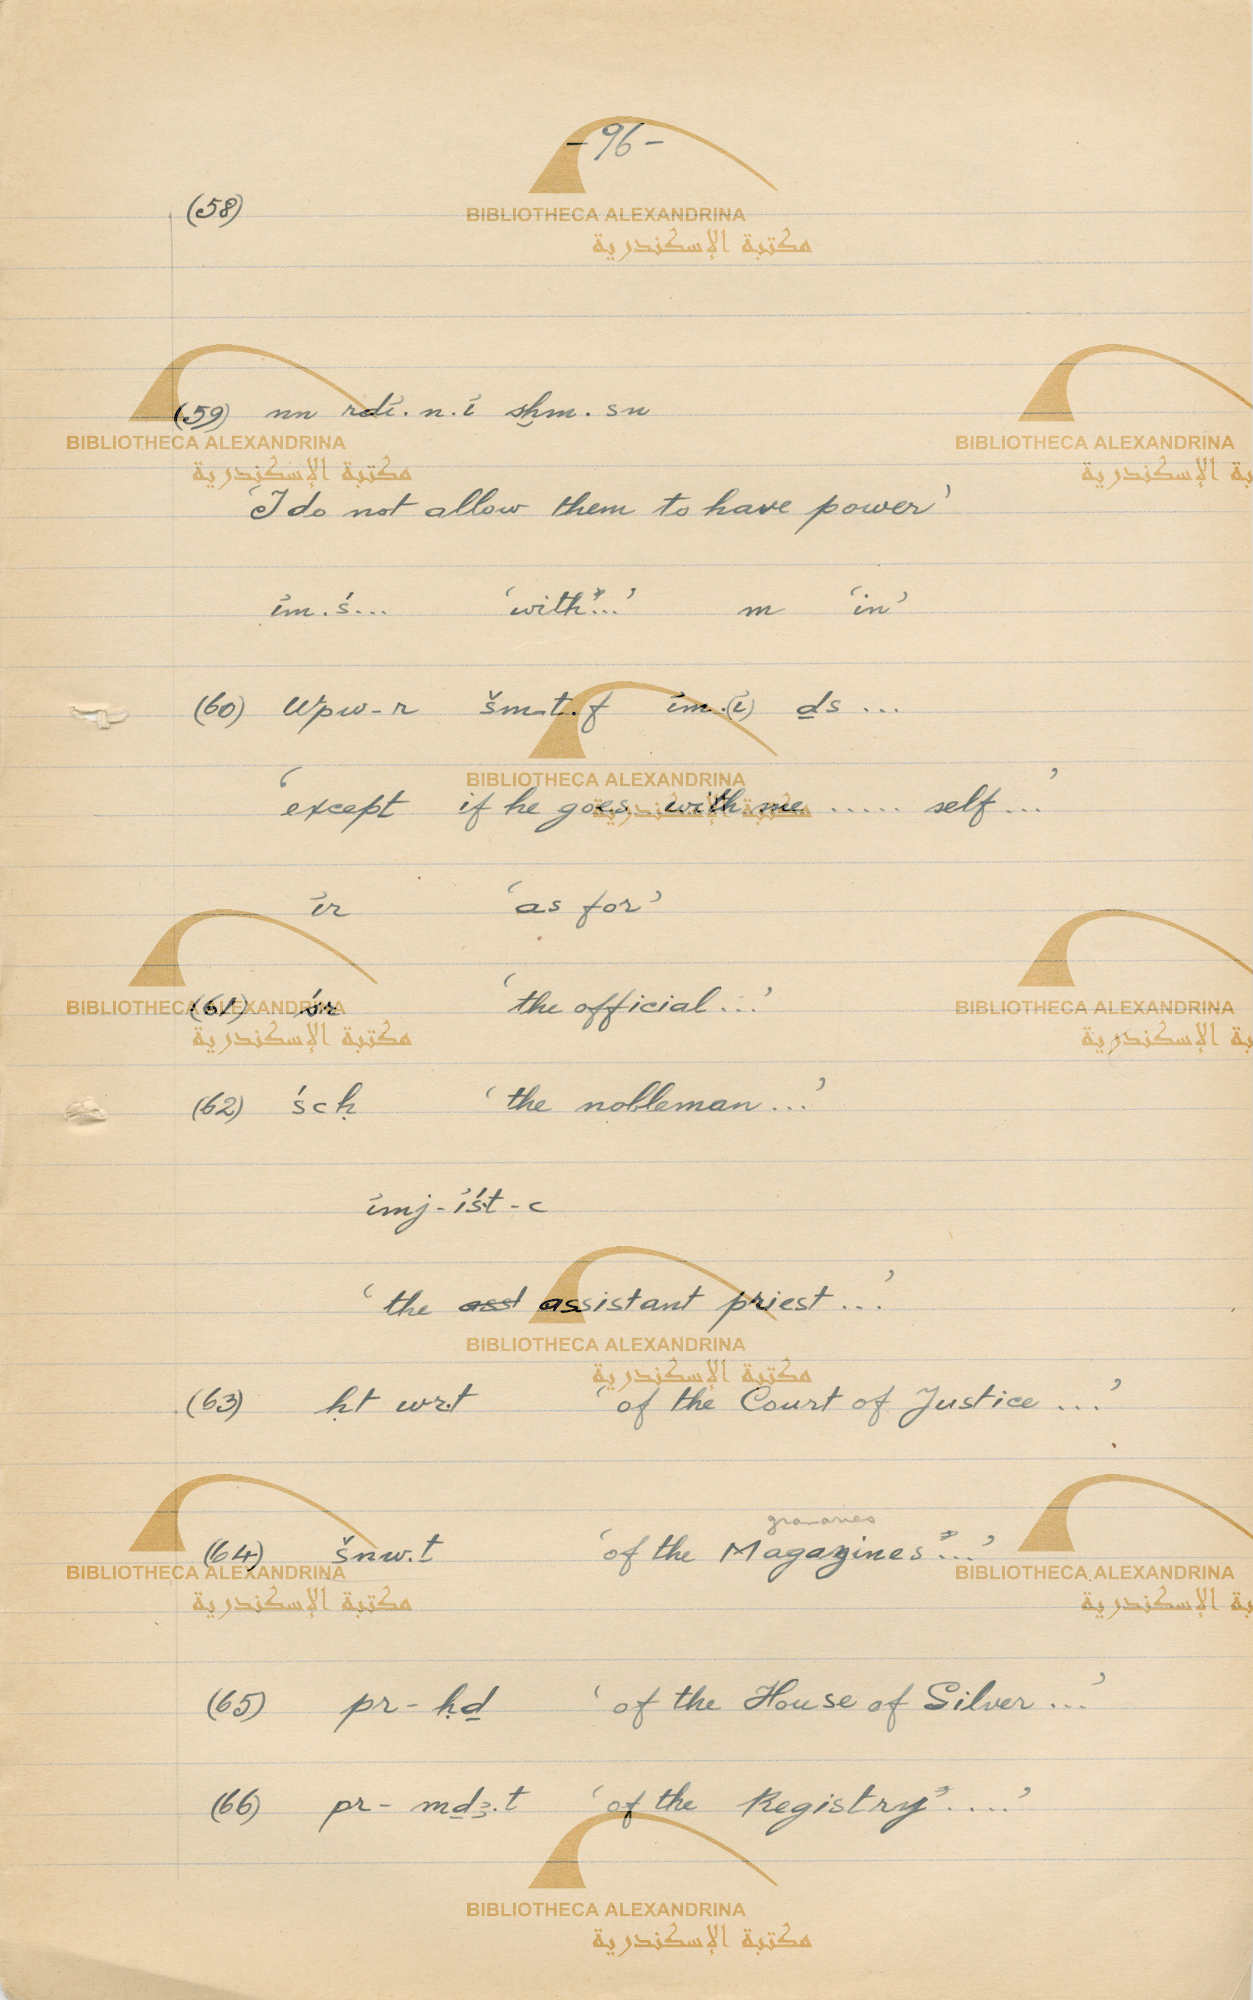 -96-
(58)
(59) nn rdỉ.n.ỉ sḫm.sn
‘I do not allow them to have power’
ỉm.ś... ‘with...’ m ‘in’
(60) Wpw-r šmt.f ỉm.(ỉ) ḏs ...
‘except if he goes with me ..... self ...’
ỉr ‘as for’
(61) śr ‘the official ...’
(62) ścḥ ‘the nobleman ...’
ỉmj-ỉśt-c
‘the asst assistant priest ...’
(63) ḥt wr.t ‘of the Court of Justice ...’
granaries
(64) šnw.t ‘of the Magazines ...’
(65) pr-ḥḏ ‘of the House of Silver ...’
(66) pr-mḏꜣ.t ‘of the Registry ....’
BIBLIOTHECA ALEXANDRINA
مكتبة الإسكندرية
BIBLIOTHECA ALEXANDRINA
مكتبة الإسكندرية
BIBLIOTHECA ALEXANDRINA
BIBLIOTHECA ALEXANDRINA
مكتبة الإسكندرية
BIBLIOTHECA ALEXANDRINA
مكتبة الإسكندرية
BIBLIOTHECA ALEXANDRINA
BIBLIOTHECA ALEXANDRINA
مكتبة الإسكندرية
BIBLIOTHECA ALEXANDRINA
مكتبة الإسكندرية
BIBLIOTHECA ALEXANDRINA
BIBLIOTHECA ALEXANDRINA
مكتبة الإسكندرية